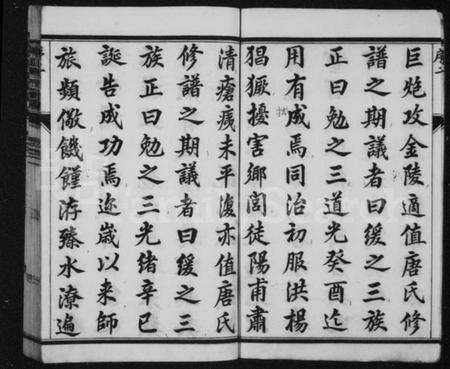 序二
巨炮攻金陵適值唐氏修
譜之期議者曰緩之三族
正曰勉之三道光癸酉迄
用有成焉同治初服洪楊
猖獗擾害鄉閭徒陽甫肅
清瘡痍未平復亦值唐氏
修譜之期議者曰緩之三
族正曰勉之三光緒辛巳
誕告成功焉迩嵗以来師
旅頻儆饑饉洊臻水潦遍